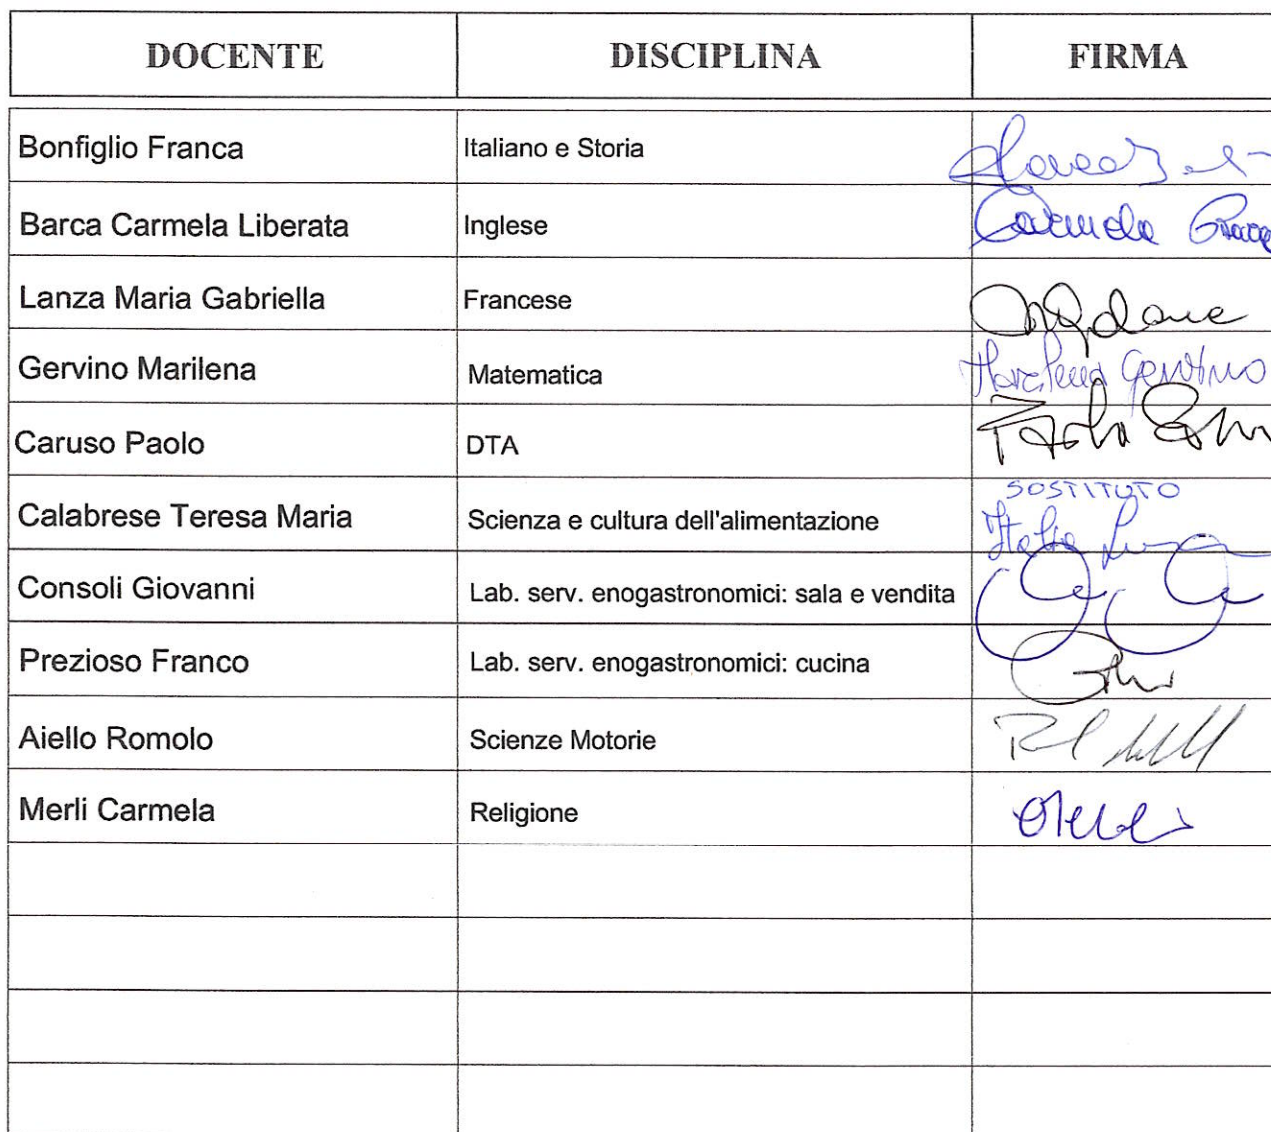 DOCENTE DISCIPLINA FIRMA
Bonfiglio Franca Italiano e Storia
Barca Carmela Liberata Inglese Carmela
Lanza Maria Gabriella Francese
Gervino Marilena Matematica Marilena Gervino
Caruso Paolo DTA
Calabrese Teresa Maria Scienza e cultura dell'alimentazione SOSTITUTO
Consoli Giovanni Lab. serv. enogastronomici: sala e vendita
Prezioso Franco Lab. serv. enogastronomici: cucina
Aiello Romolo Scienze Motorie
Merli Carmela Religione